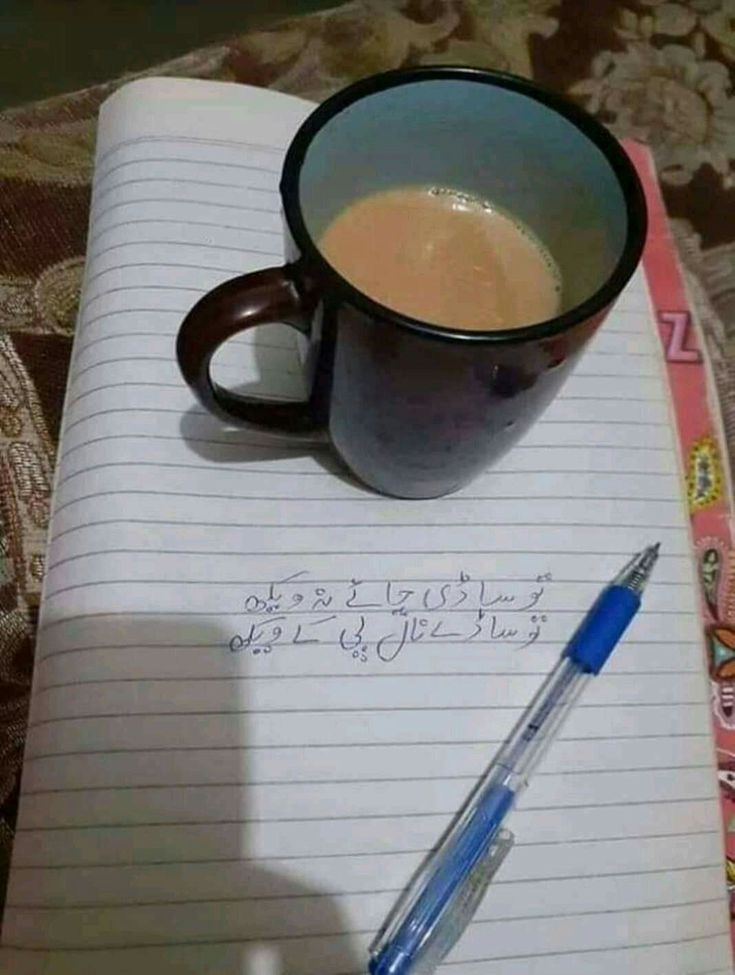 تو ساڈی چائے نہ ویکھ
تو ساڈے نال پی کے ویکھ
Z